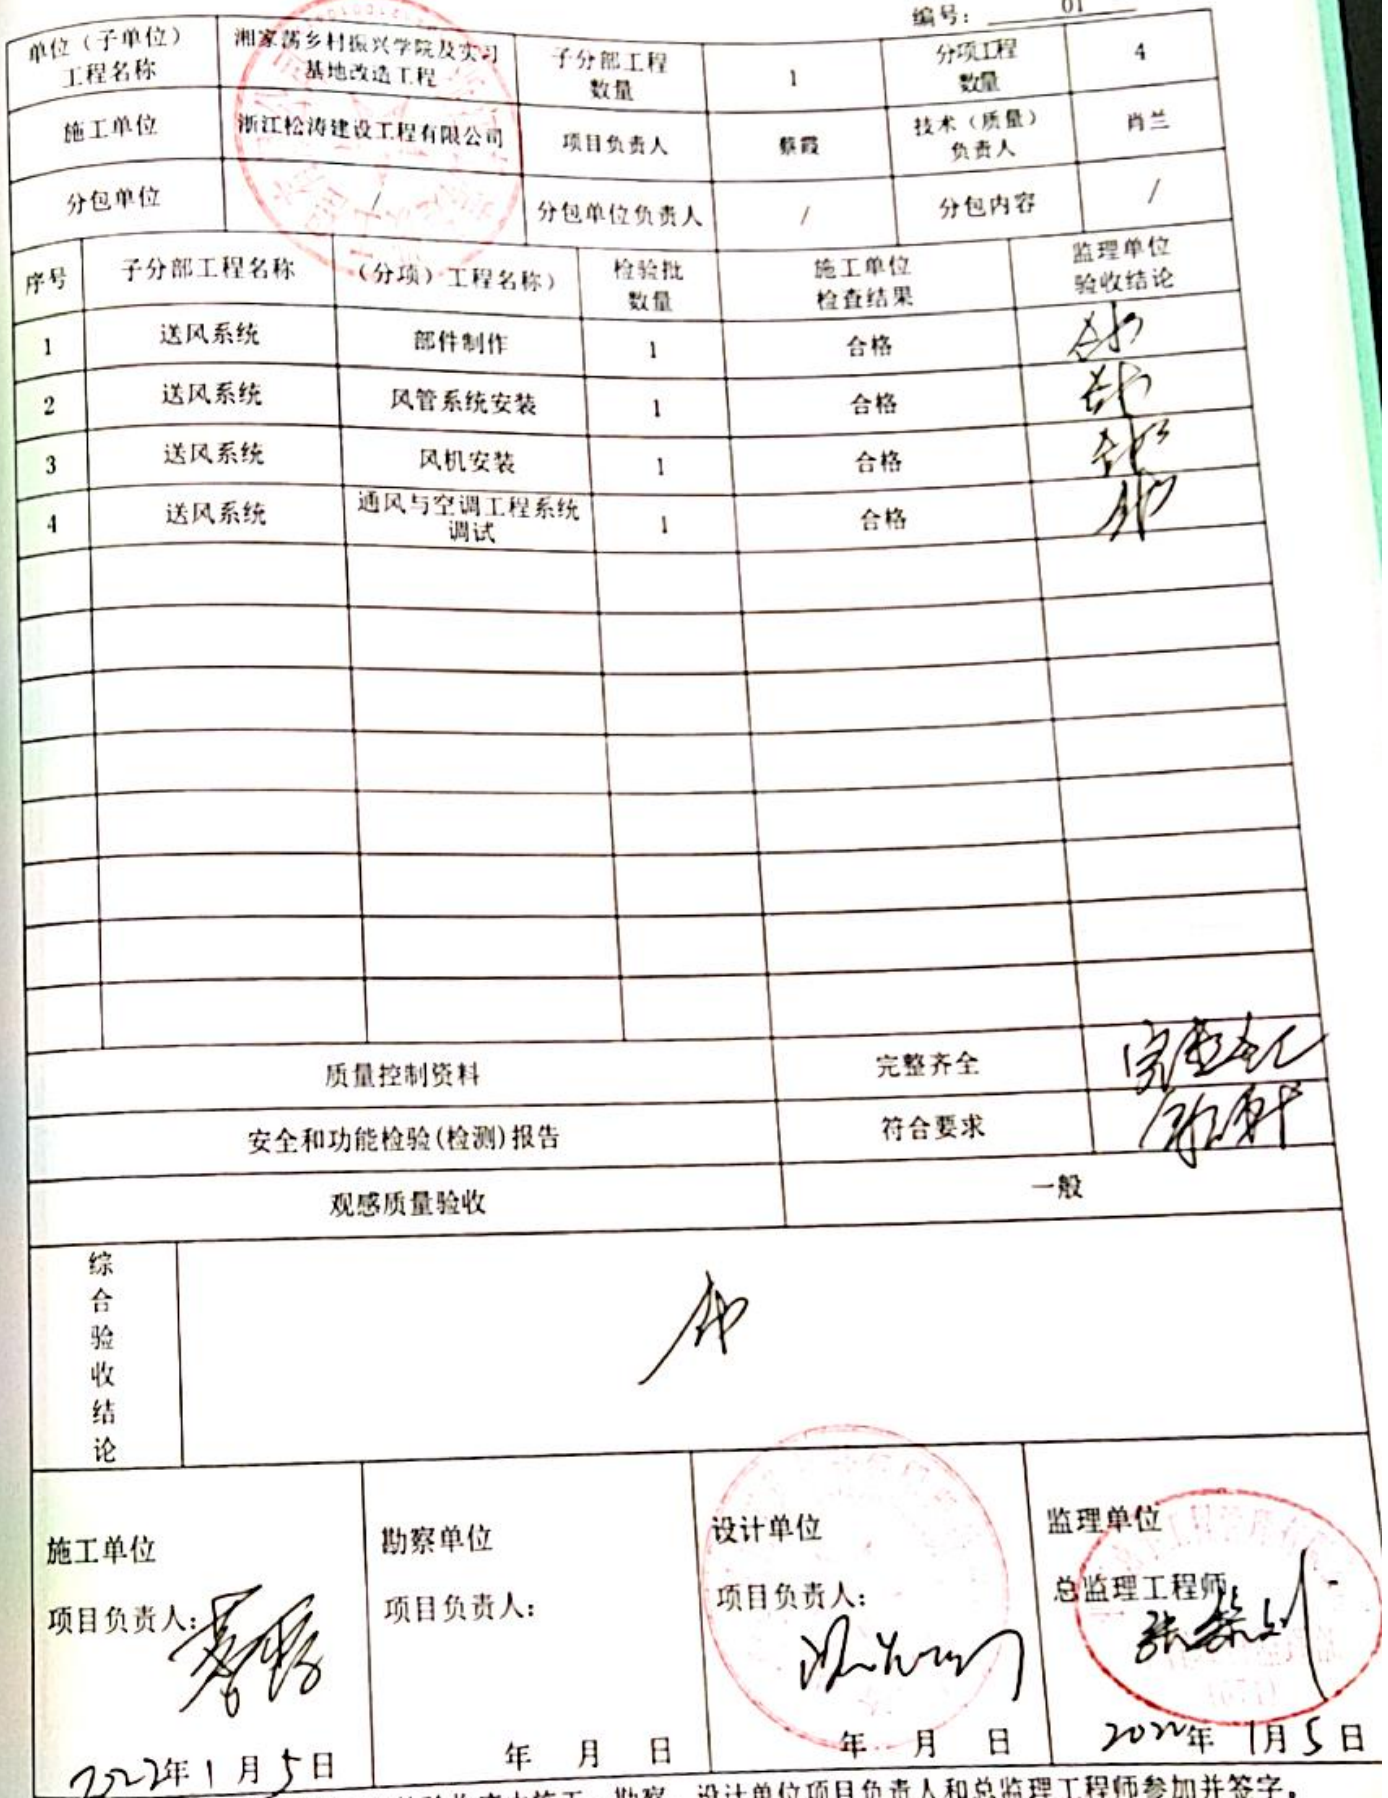 编号： 01
单位（子单位）
工程名称
湘家荡乡村振兴学院及实习
基地改造工程
子分部工程
数量
1
分项工程
数量
4
施工单位
浙江松涛建设工程有限公司
项目负责人
蔡霞
技术（质量）
负责人
肖兰
分包单位
/
分包单位负责人
/
分包内容
/
序号
子分部工程名称
（分项）工程名称）
检验批
数量
施工单位
检查结果
监理单位
验收结论
1
送风系统
部件制作
1
合格
合格
2
送风系统
风管系统安装
1
合格
合格
3
送风系统
风机安装
1
合格
合格
4
送风系统
通风与空调工程系统
调试
1
合格
合格
质量控制资料
完整齐全
安全和功能检验(检测)报告
符合要求
观感质量验收
一般
综
合
验
收
结
论
合格
施工单位
项目负责人：
2022年1月5日
勘察单位
项目负责人：
年 月 日
设计单位
项目负责人：
年 月 日
监理单位
总监理工程师
2022年1月5日
设计单位项目负责人和总监理工程师参加并签字。